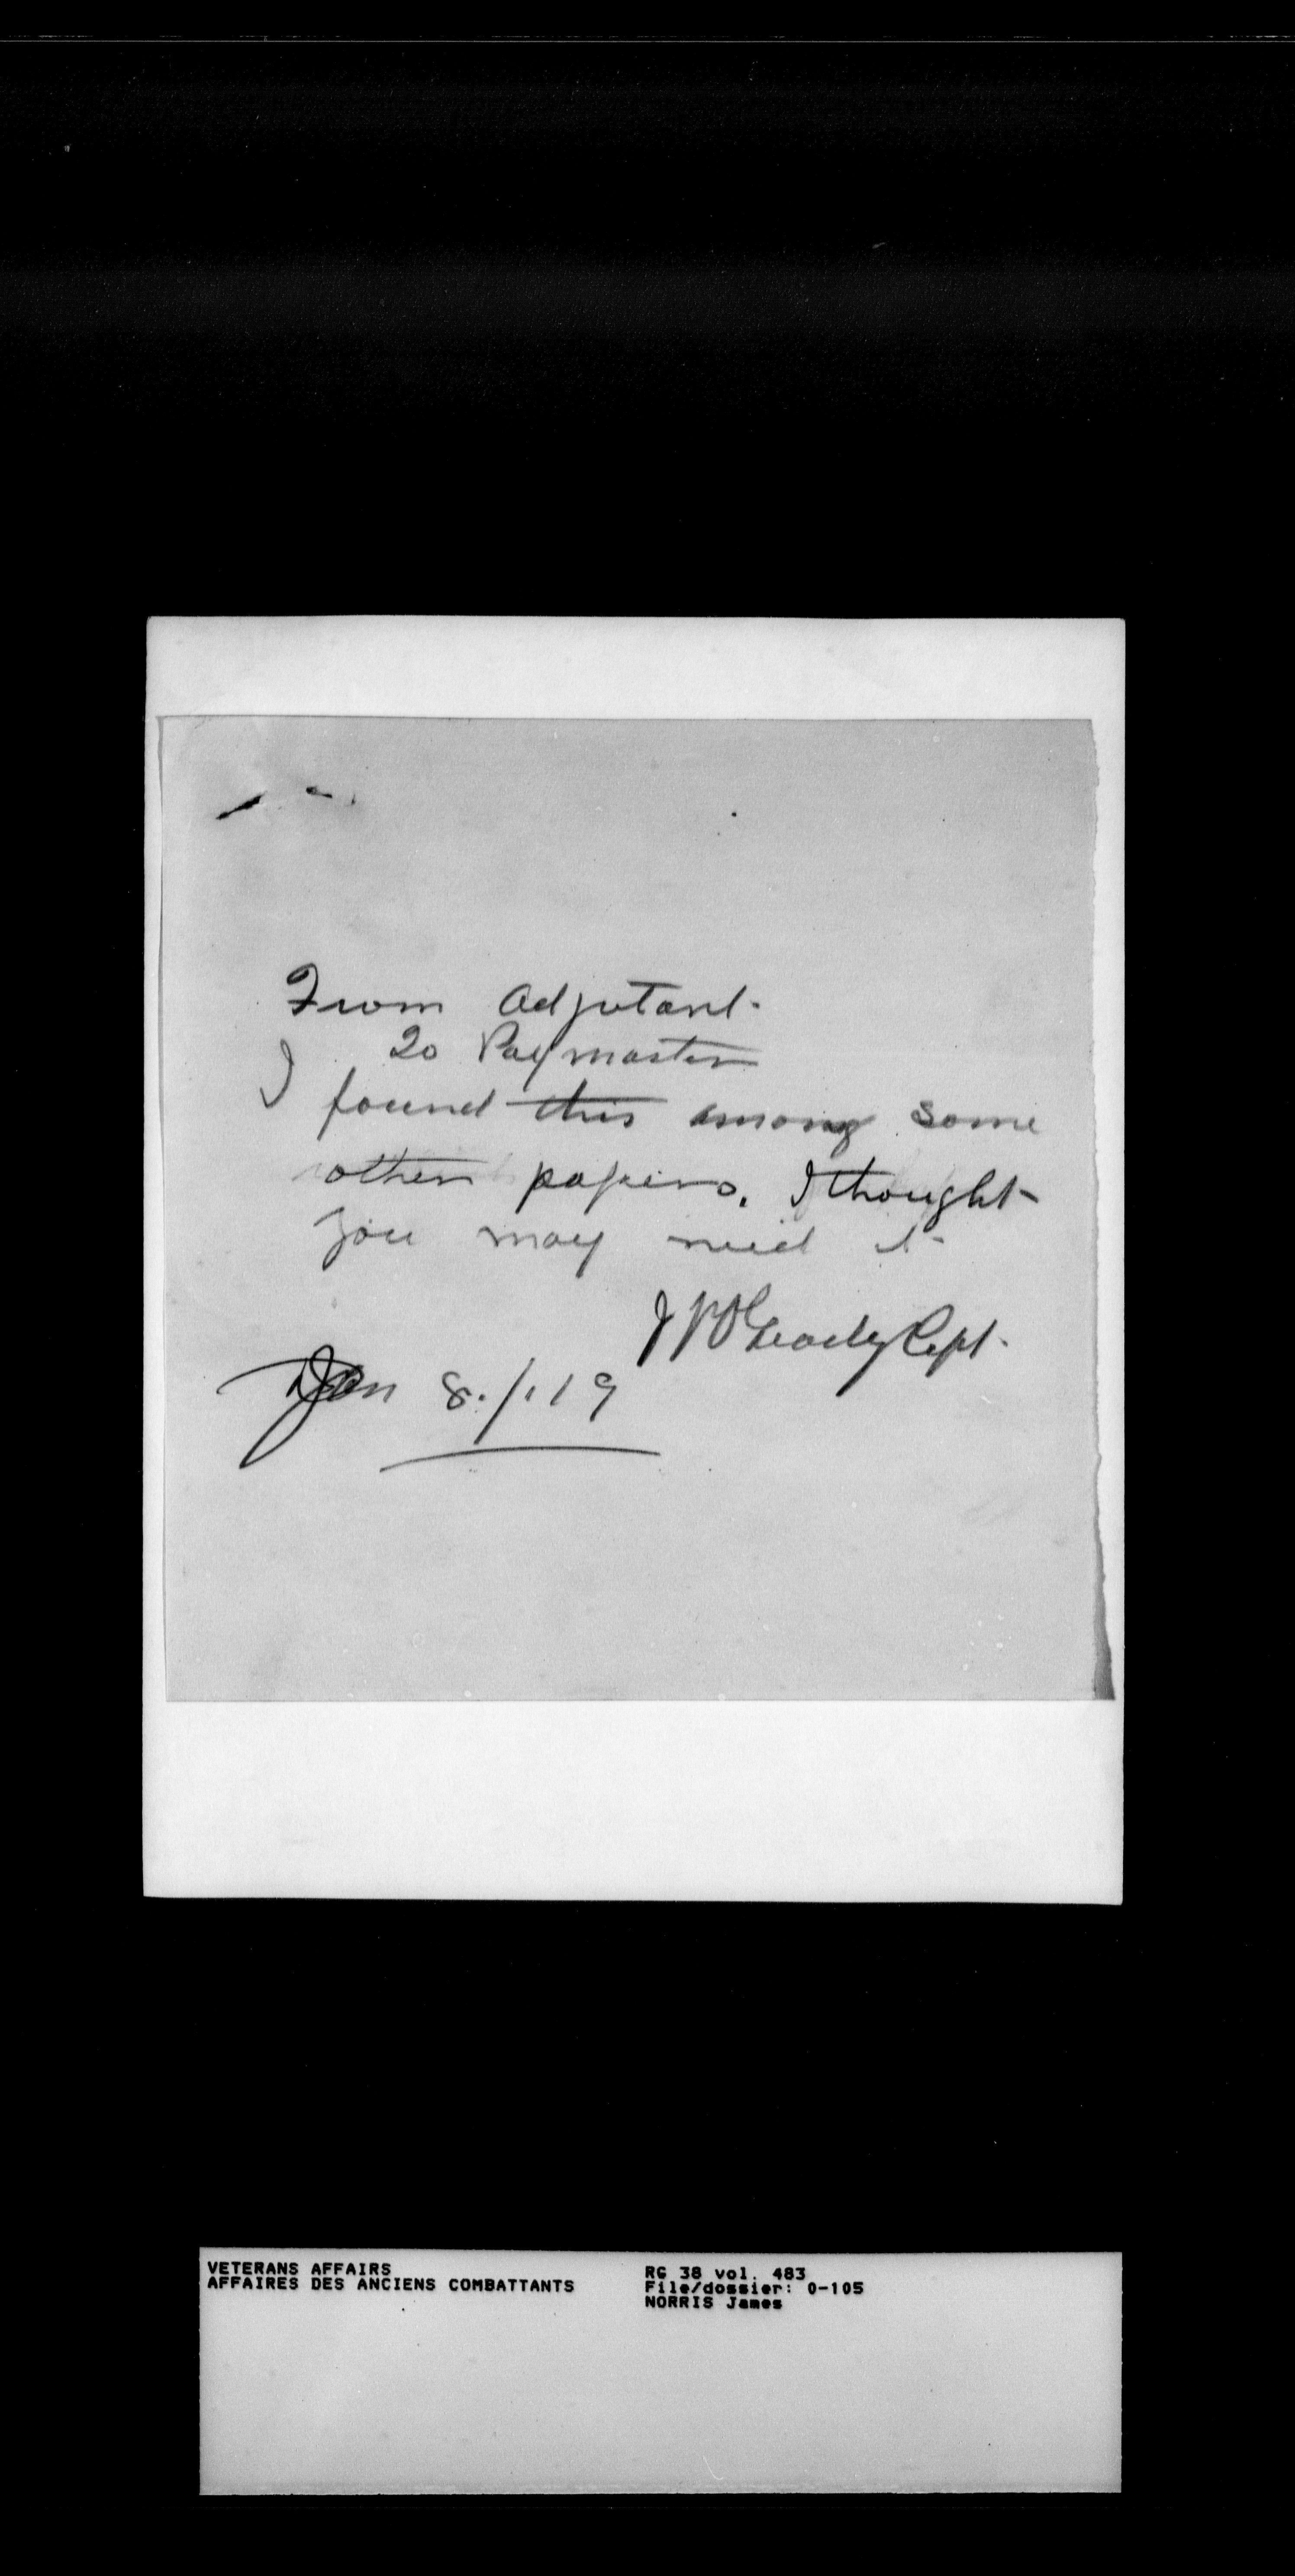 From Adjutant.
To Paymaster
I found this among some
other papers. I thought
you may need it
Capt.
Jan 8./1.19
VETERANS AFFAIRS
AFFAIRES DES ANCIENS COMBATTANTS
RG 38 vol. 483
File/dossier: 0-105
NORRIS James